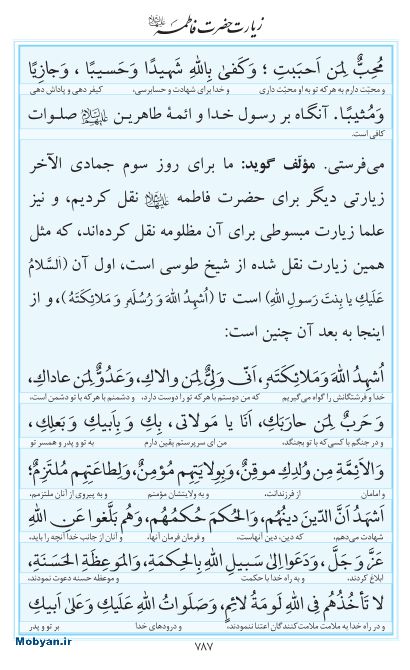 زیارت حضرت فاطمه علیهاالسلام
مُحِبٌّ لِمَن اَحبَبتِ ؛ وَكَفىٰ بِاللهِ شَهيدًا وَحَسيبًا ، وَجازِيًا
و محبّت دارم به هر که تو به او محبّت داری و خدا برای شهادت و حسابرسی، کیفر دهی و پاداش دهی
وَمُثيبًا. آنگاه بر رسول خدا و ائمهٔ طاهرین علیهم‌السلام صلوات
کافی است.
می‌فرستی. مؤلّف گوید: ما برای روز سوم جمادی الآخر
زیارتی دیگر برای حضرت فاطمه علیهاالسلام نقل کردیم، و نیز
علما زیارت مبسوطی برای آن مظلومه نقل کرده‌اند، که مثل
همین زیارت نقل شده از شیخ طوسی است، اول آن (اَلسَّلامُ
عَلَيكِ يا بِنتَ رَسولِ اللهِ) است تا (اُشهِدُ اللهَ وَ رُسُلَهُ وَ مَلائِكَتَهُ)، و از
اینجا به بعد آن چنین است:
اُشهِدُ اللهَ وَمَلائِكَتَهُ، اَنّى وَلِىٌّ لِمَن والاكِ، وَعَدُوٌّ لِمَن عاداكِ،
خدا و فرشتگانش را گواه می‌گیریم که من دوستم با هر که تو را دوست دارد، و دشمنم با هر که با تو دشمن است،
وَ حَربٌ لِمَن حارَبَكِ، اَنَا يا مَولاتى، بِكِ وَ بِاَبيكِ وَ بَعلِكِ،
و در جنگم با کسی که با تو بجنگد، من ای سرپرستم یقین دارم به تو و پدر و همسر تو
وَالاَئِمَّةِ مِن وُلدِكِ موقِنٌ، وَبِوِلايَتِهِم مُؤمِنٌ، وَلِطاعَتِهِم مُلتَزِمٌ؛
و امامان از فرزندانت، و به ولایتشان مؤمنم و به پیروی از آنان ملتزمم،
اَشهَدُ اَنَّ الدّينَ دينُهُم، وَالحُكمَ حُكمُهُم، وَهُم بَلَّغوا عَنِ اللهِ
شهادت می‌دهم، که دین، دین آنهاست، و فرمان فرمان آنها، و آنان از جانب خدا آنچه را باید،
عَزَّ وَ جَلَّ، وَدَعَوا اِلىٰ سَبيلِ اللهِ بِالحِكمَةِ، وَالمَوعِظَةِ الحَسَنَةِ،
ابلاغ کردند، و به راه خدا با حکمت و موعظه حسنه دعوت نمودند،
لا تَأخُذُهُم فِى اللهِ لَومَةُ لائِمٍ، وَصَلَواتُ اللهِ عَلَيكِ وَعَلىٰ اَبيكِ
و در راه خدا به ملامت ملامت کنندگان اعتنا ننمودند، و درودهای خدا بر تو و پدر
۷۸۷
Mobyan.ir